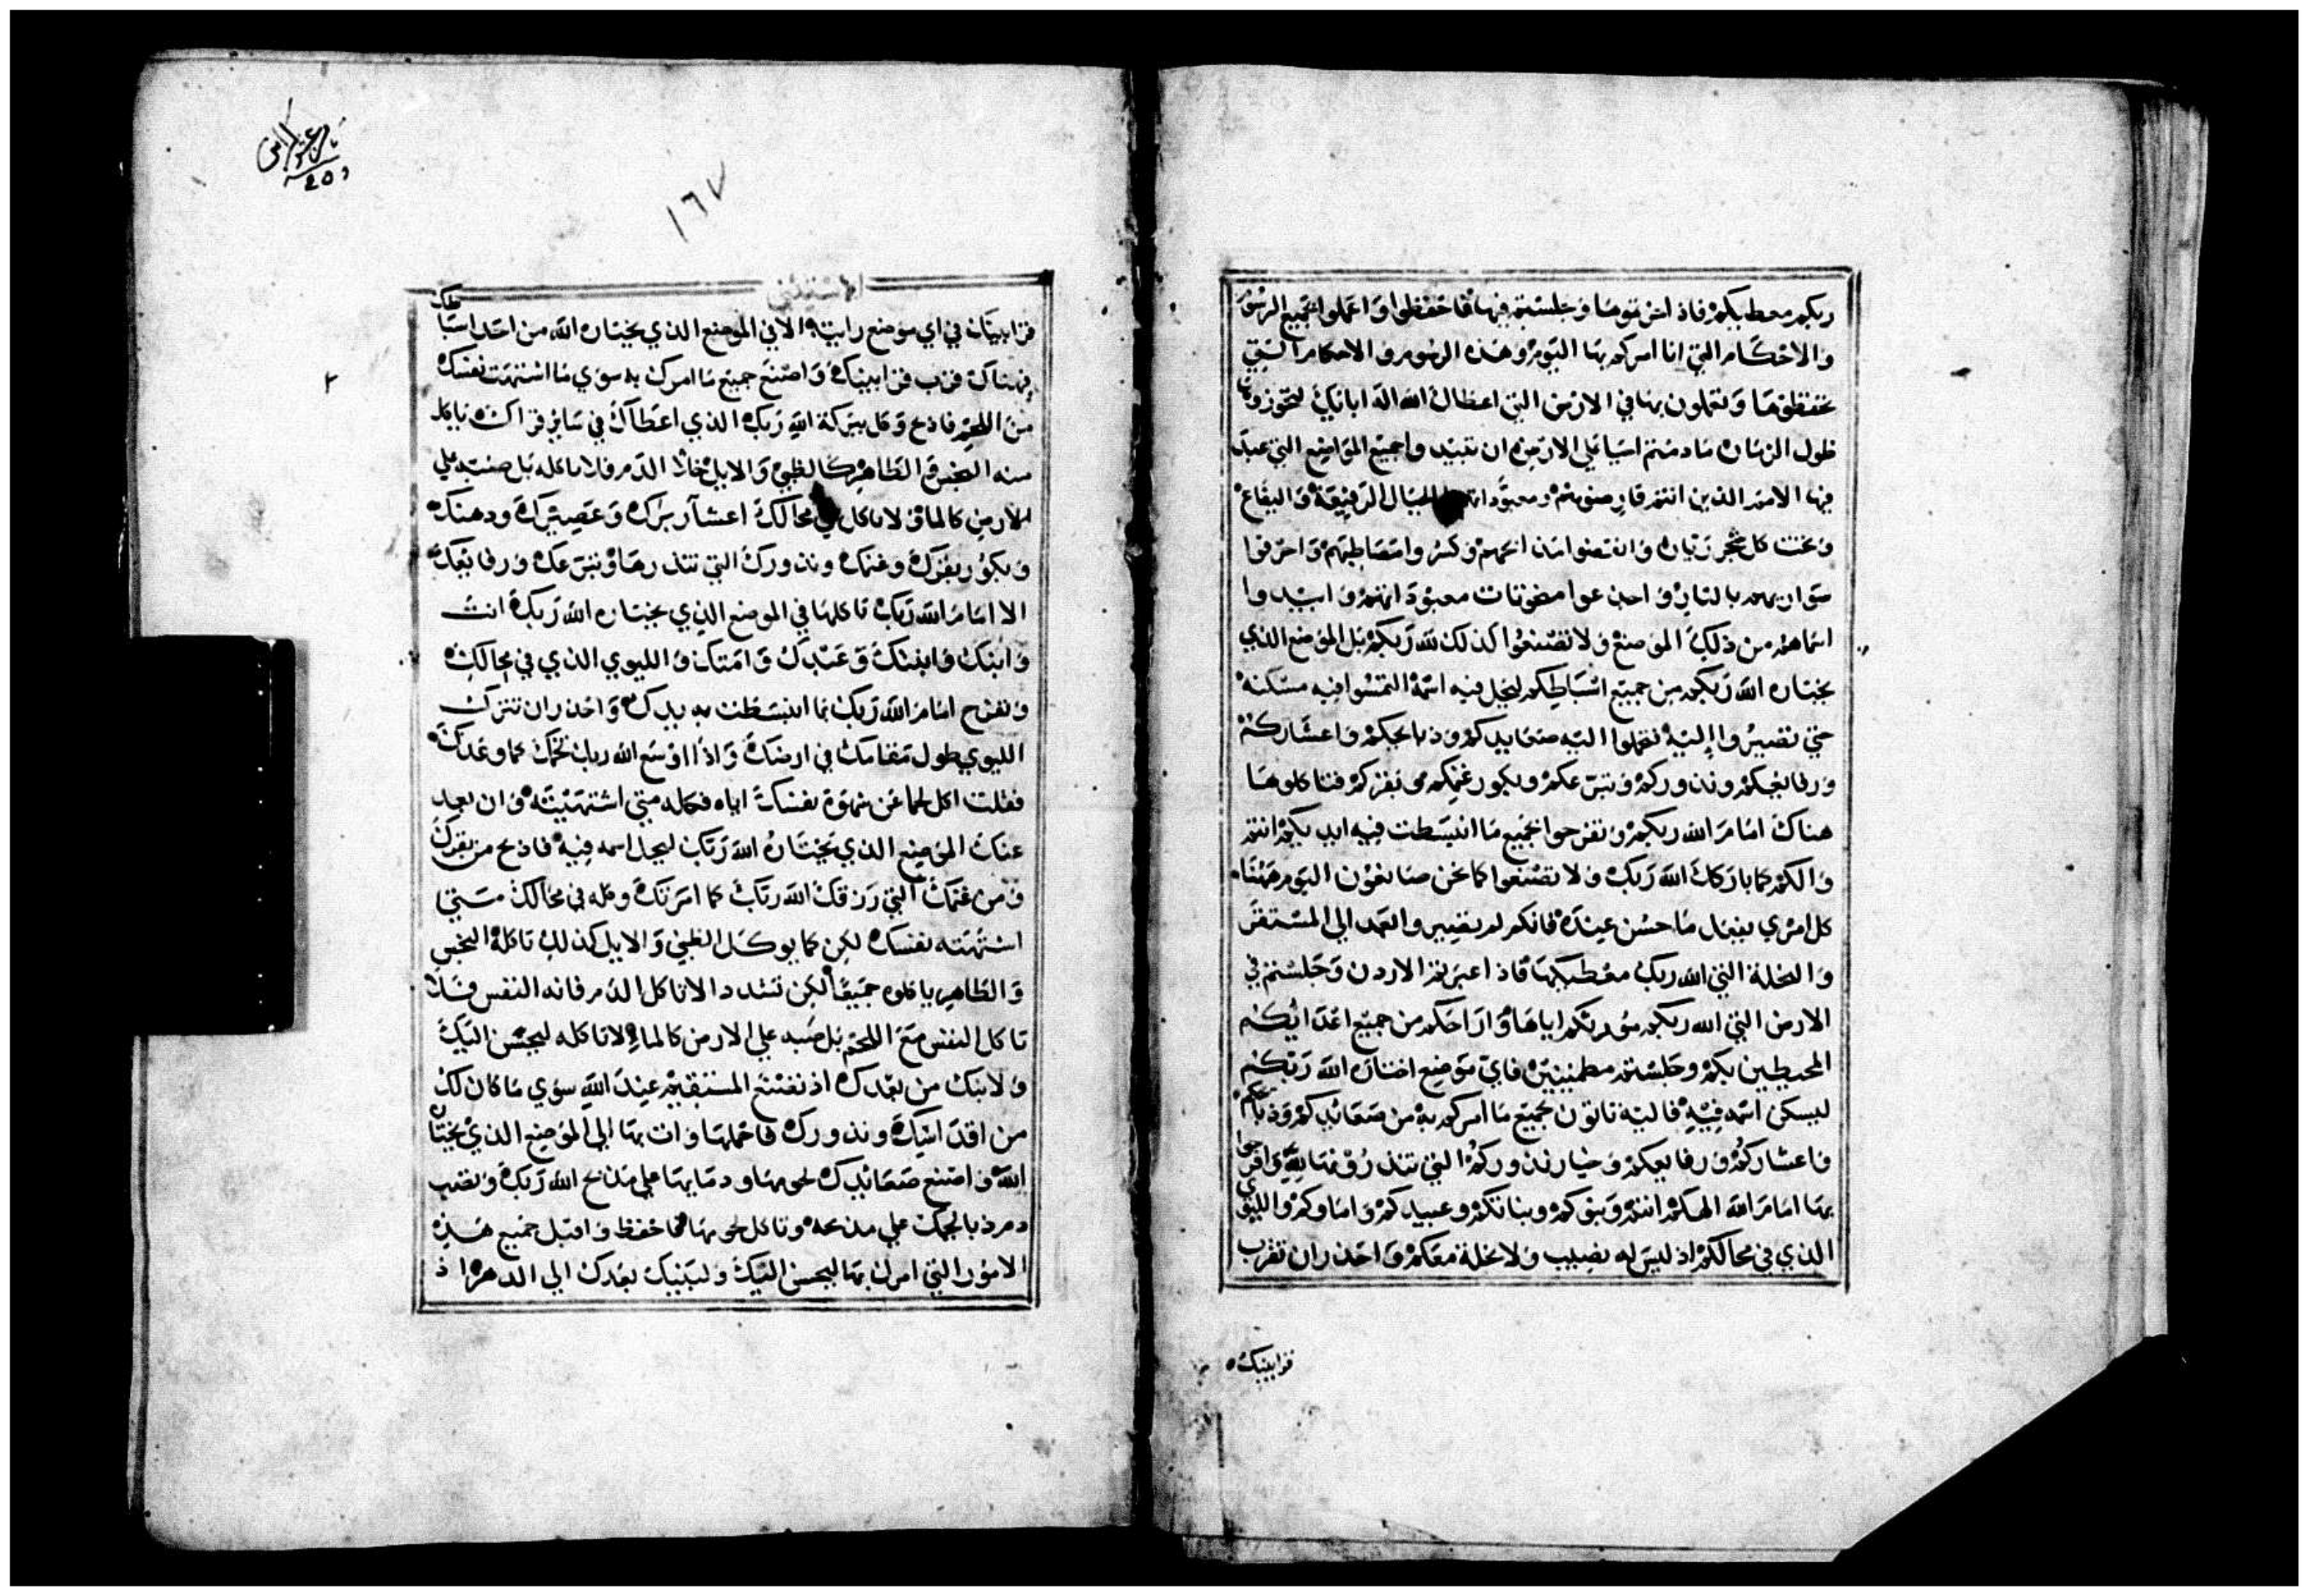 ربكم معطيكم فاذا حزتموها وجلستم فيها فاحفظوا واعملوا بجميع الرسوم
والاحكام التي انا امركم بها اليوم وهذه الرسوم والاحكام التي
تحفظوها وتعملون بها في الارض التي اعطاك الله اله ابائك لتحوزوها
طول الزمان ما دمتم احيا علي الارض ان تبيدوا جميع المواضع التي عبد
فيها الامم الذين انتم قارضوهم ومعبوداتهم الجبال الرفيعة والبقاع
وتحت كل شجر ريان وانقضوا مذابحهم وكسروا مصاطبهم واحرقوا
سواريهم بالنار واجذعوا منحوتات معبوداتهم وابيدوا
اسماهم من ذلك الموضع ولا تصنعوا كذلك لله ربكم بل الموضع الذي
يختاره الله ربكم من جميع اسباطكم ليحل فيه اسمه التمسوا فيه مسكنه
حتي تصيروا اليه تحملوا اليه صعايدكم وذبايحكم واعشاركم
ورفايعكم ونذوركم وتبرعكم وبكور غنمكم وبقركم فتاكلوها
هناك امام الله ربكم وتفرحوا بجميع ما انبسطت فيه ايديكم انتم
والكم كما باركك الله ربك ولا تصنعوا كما نحن صانعون اليوم ههنا
كل امري يفعل ما حسن عينده فانكم لم تصيروا لعهد الي المستقر
والنحلة التي الله ربك معطيكها فاذا عبرتم الاردن وجلستم في
الارض التي الله ربكم مورثكم اياها واراحكم من جميع اعدائكم
المحيطين بكم وجلستم مطمينين فاي موضع اختاره الله ربكم
ليسكن اسمه فيه فاليه تاتون بجميع ما امركم به من صعائدكم وذبايحكم
واعشاركم ورفايعكم وخيار نذوركم التي تنذرونها لله وافرحوا
بها امام الله الهكم انتم وبنوكم وبناتكم وعبيدكم واماوكم والليوي
الذي في محالكم اذ ليس له نصيب ولا نحلة معكم واحذر ان تقرب
قرابينك
١٦٧
الاستثني
قرابينك في اي موضع رايته الا في الموضع الذي يختاره الله من احد اسباطك
فهناك قرب قرابينك واصنع جميع ما امرك به سوي ما اشتهت نفسك
من اللحم فاذبح وكل ببركة الله ربك الذي اعطاك في سائر قراك ياكل
منه النجس والطاهر كالظبي والايل خلا الدم فلا تاكله بل صبه علي
الارض كالما ولا تاكل في محالك اعشار برك وعصيرك ودهنك
وبكور بقرك وغنمك ونذورك التي تنذرها وتبرعك ورفايعك
الا امام الله ربك تاكلها في الموضع الذي يختاره الله ربك انت
وابنك وابنتك وعبدك وامتك والليوي الذي في محالك
وتفرح امام الله ربك بما انبسطت به يدك واحذر ان تترك
الليوي طول مقامك في ارضك واذا اوسع الله ربك تخمك كما وعدك
فقلت اكل لحما عن شهوة نفسك اياه فكله متي اشتهيته وان بعد
عنك الموضع الذي يختاره الله ربك ليحل اسمه فيه فاذبح من بقرك
ومن غنمك التي رزقك الله ربك كما امرتك وكله في محالك متي
اشتهته نفسك لكن كما يوكل الظبي والايل كذلك تاكله النجس
والطاهر ياكلوه جميعا لكن تشدد الا تاكل الدم فانه النفس فلا
تاكل النفس مع اللحم بل صبه علي الارض كالما لا تاكله ليحسن اليك
ولابنك من بعدك اذ تصنع المستقيم عند الله سوي ما كان لك
من اقداسك ونذورك فاحملها وات بها الي الموضع الذي يختاره
الله واصنع صعائدك لحومها ودمايها علي مذبح الله ربك وتصب
دم ذبايحك علي مذبحه وتاكل لحومها فاحفظ واقبل جميع هذه
الامور التي امرك بها ليحسن اليك ولبنيك بعدك الي الدهر اذ